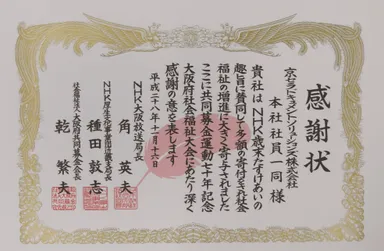 感謝状
京セラドキュメントソリューションズ株式会社
本社社員一同様
貴社はNHK歳末たすけあいの
趣旨に賛同して多額の寄付をされ社会
福祉の増進に大きく寄与されました
ここに共同募金運動七十年記念
大阪府社会福祉大会にあたり深く
感謝の意を表します
平成二十八年十一月十六日
NHK大阪放送局長
角英夫
NHK厚生文化事業団近畿支局長
種田敦志
社会福祉法人大阪府共同募金会会長
乾繁夫